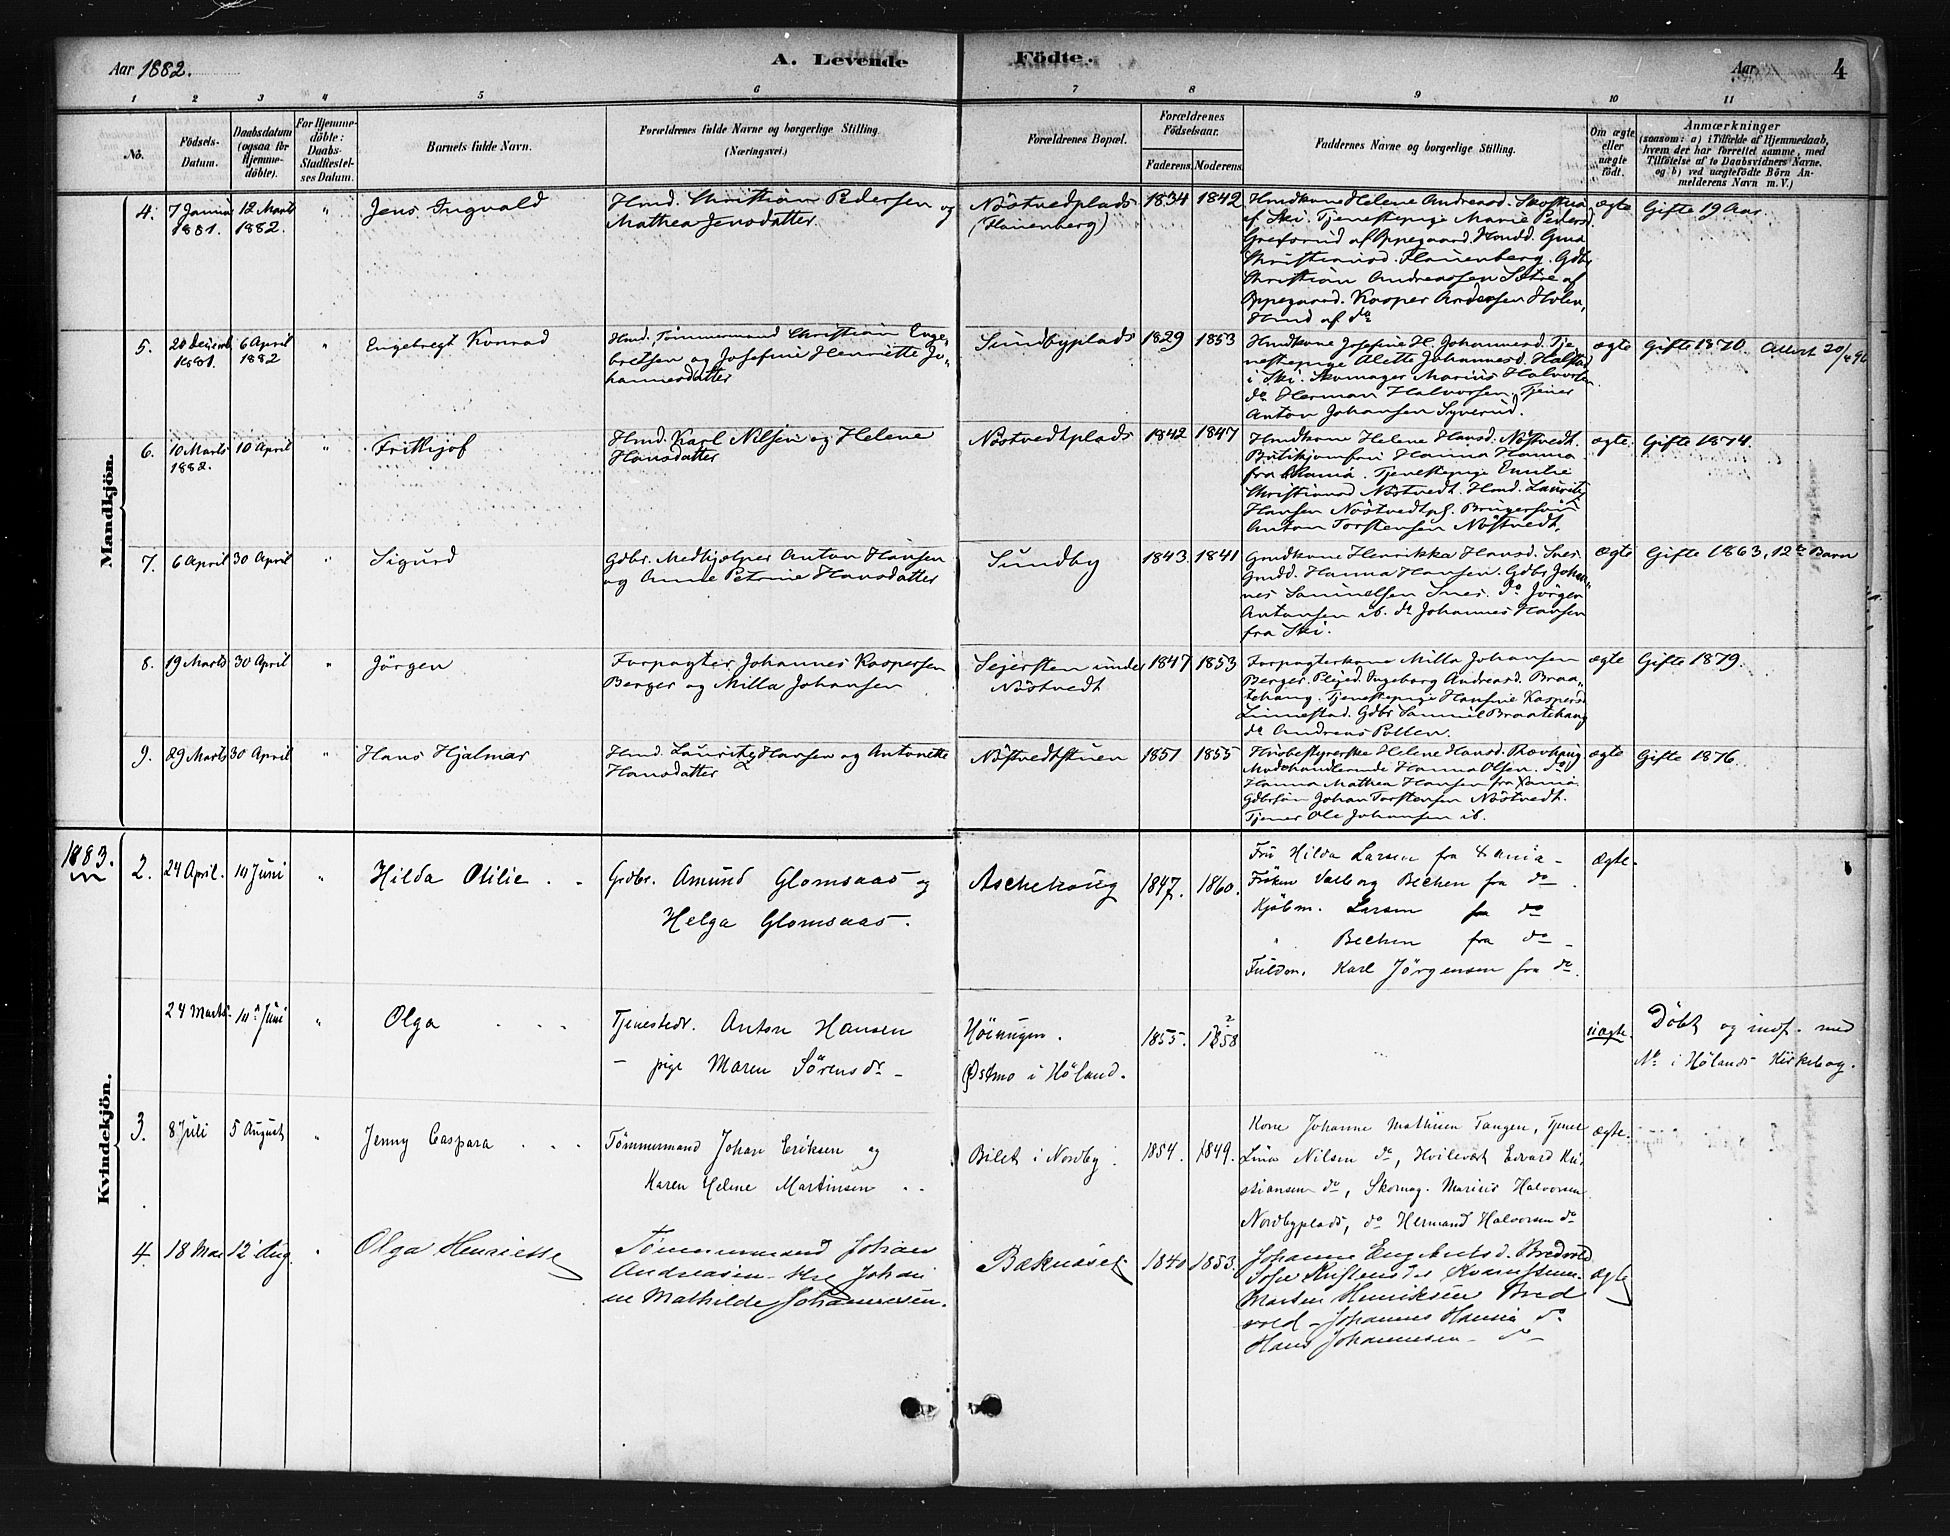 Aar 1882.
A. Levende Födte.
Aar
4
1 2 3 4 5 6 7 8 9 10 11
No.
Födsels-Datum.
Daabsdatum (ogsaa for Hjemme-döbte).
For Hjemme-döbte: Daabs-Stadfæstel-ses Datum.
Barnets fulde Navn.
Forældrenes fulde Navne og borgerlige Stilling.
(Næringsvei.)
Forældrenes Bopæl.
Forældrenes Födselsaar.
Faderens. Moderens.
Faddernes Navne og borgerlige Stilling.
Om ægte eller uægte födt.
Anmærkninger
(saasom: a) i Tilfælde af Hjemmedaab, hvem der har forrettet samme, med Tilföielse af to Daabsvidners Navne, og b) ved uægtefödte Börn An-melderens Navn m. V.)
Mandkjön.
4. 7 Januar 1881. 12 Marts 1882. " Jens Ingvald
Hmd. Christian Pedersen og
Mathea Jensdatter.
Nöstvedplads
(Hauenberg)
1834 1842
Hmdkone Helene Andreasd.
af Ski. Tjenestepige Marie Pedersd.
Greverud af Oppegaard.
Christiansd. Hauenberg. Gdbr.
Christian Andreassen Sætre af
Oppegaard. Kasper Andersen Holen,
Hmd af do
ægte Gifte 19 Aar.
5. 20 Decemb. 1881. 6 April 1882 " Engebregt Konrad
Hmd. Tömmermand Christian Enge-
bretsen og Josefine Henriette Jo-
hannesdatter
Sundbyplads
1829 1853
Hmdkone Josefine H. Johannesd. Tje-
nestepige Alette Johannesd. Halstad
i Ski. Skomager Marius Halvorsen
do Herman Halvorsen, Tjener
Anton Johansen Syverud.
ægte Gifte 1870.
6. 10 Marts 1882. 10 April " Frithjof
Hmd. Karl Nilsen og Helene
Hansdatter
Nöstvedtplads
1842 1847
Hmdkone Helene Hansd. Nöstvedt.
Butikjomfru Hanna Hansen
fra Xania. Tjenestepige Emilie
Christiansd Nöstvedt. Hmd. Lauritz
Hansen Nöstvedtpl. Brugersön
Anton Torstensen Nöstvedt.
ægte. Gifte 1874.
7. 6 April 30 April " Sigurd
Gdbr. Medhjelper Anton Hansen
og Anne Petrine Hansdatter
Sundby
1843 1841
Gmdkone Henrikka Hansd. Snes.
Gmdd. Hanna Hansen. Gdbr Johan-
nes Samuelsen Snes. do Jörgen
Antonsen ib. do Johannes Hansen
fra Ski.
ægte Gifte 1863, 12te Barn
8. 19 Marts 30 April " Jörgen
Forpagter Johannes Kaspersen
Berger og Milla Johansen
Sejersten under
Nöstvedt
1847 1853
Forpagterkone Milla Johansen
Berger. Plejed. Ingeborg Andreasd. Braa-
tehaug. Tjenestepige Hansine Kaspersd
Linnestad. Gdbr Samuel Braatehaug
do Andreas Pollen.
ægte Gifte 1879.
9. 29 Marts 30 April " Hans Hjalmar
Hmd. Lauritz Hansen og Antonette
Hansdatter
Nöstvedtstuen
1851 1855
Husbestyrerske Helene Hansd. Ravhaug.
Modehandlerinde Hanna Olsen. do
Hanna Mathea Hansen fra Xania.
Gdbrsön Johan Torstensen Nöstvedt.
Tjener Ole Johansen ib.
ægte Gifte 1876.
1883.
Kvindekjön.
2. 24 April. 14 Juni " Hilda Otilie
Grdbr. Amund Glomsaas og
Helga Glomsaas.
Aschehoug
1847. 1860.
Fru Hilda Larsen fra Xania
Fröken Valborg Bechen fra do
Kjöbm. Larsen fra do
" Bechen fra do
Fuldm. Karl Jörgensen fra do.
ægte.
24 Marts. 14 Juni " Olga
Tjenestedr. Anton Hansen
– pige Maren Sörensdr
Höiungen.
Østmo i Höland.
1855. 1858
uægte. Döbt og indf. med
No i Hölands Kirkebog.
3. 8 Juli 5 August " Jenny Caspara
Tömmermand Johan Eriksen og
Karen Helene Martinsen
Bilet i Nordby.
1854. 1849.
Kone Johanne Mathisen Tangen, Tjener
Lina Nilsen do, Hvilevært Edvard Kri-
stiansen do, Skomag. Marius Halvorsen
Nordbyplads, do Hermand Halvorsen do
ægte.
4. 18 Mai 12 Aug. " Olga Henriette
Tömmermand Johan
Andreasen – Johan
ne Mathilde Johannesen.
Bæknæset
1840 1853.
Johanne Engebretsd. Bredvold
Sofie Kristensdr
Martin Henriksen Bred
vold – Johannes Hansen do
Hans Johannesen – do
ægte